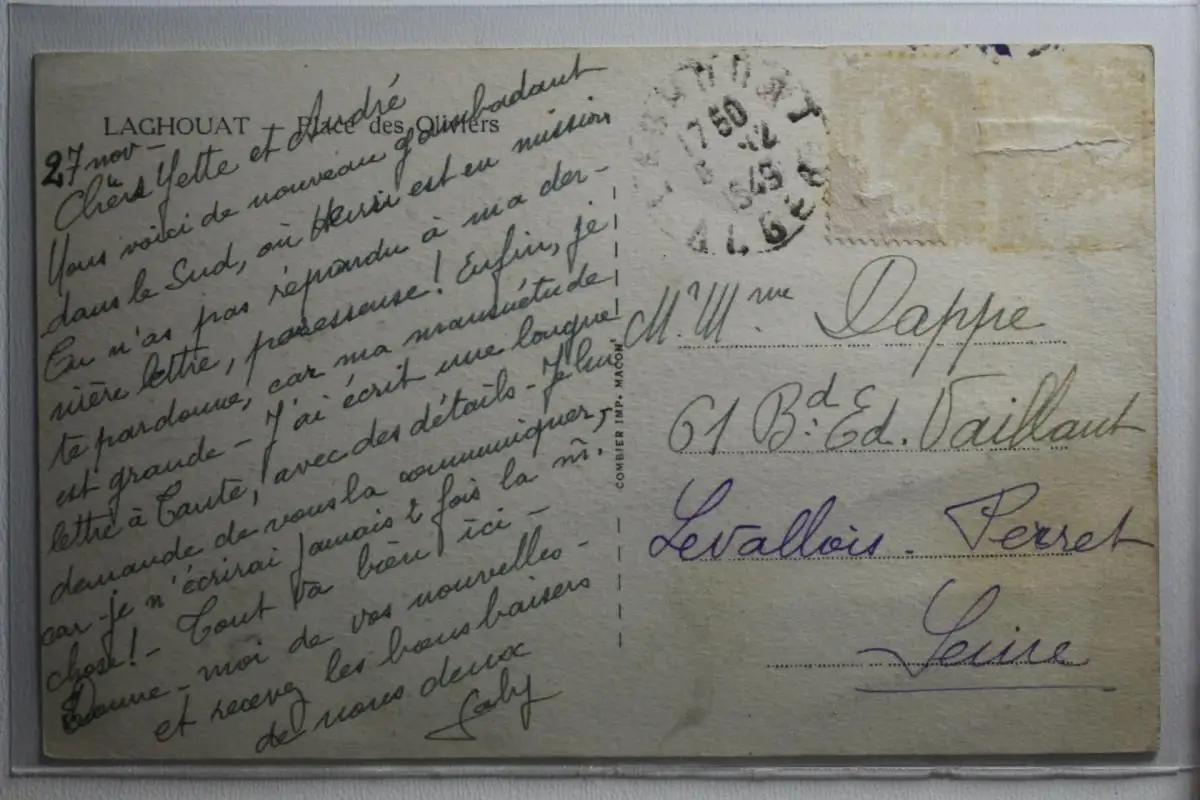 LAGHOUAT - Place des Oliviers
27 nov -
Chers Yette et André
Nous voici de nouveau gambadant
dans le Sud, où Henri est en mission
Tu n'as pas répondu à ma der-
nière lettre, paresseuse! Enfin, je
te pardonne, car ma mansuétude
est grande - J'ai écrit une longue
lettre à Tante, avec des détails - Je lui
demande de vous la communiquer,
car je n'écrirai jamais 2 fois la m̂.
chose! - Tout va bien ici -
Donne-moi de vos nouvelles -
et recevez les bons baisers
de nous deux
Gaby
COMBIER IMP. MACON
17 50
12
1949
ALGER
Mr Mme Dappe
61 Bd. Ed. Vaillant
Levallois - Perret
Seine